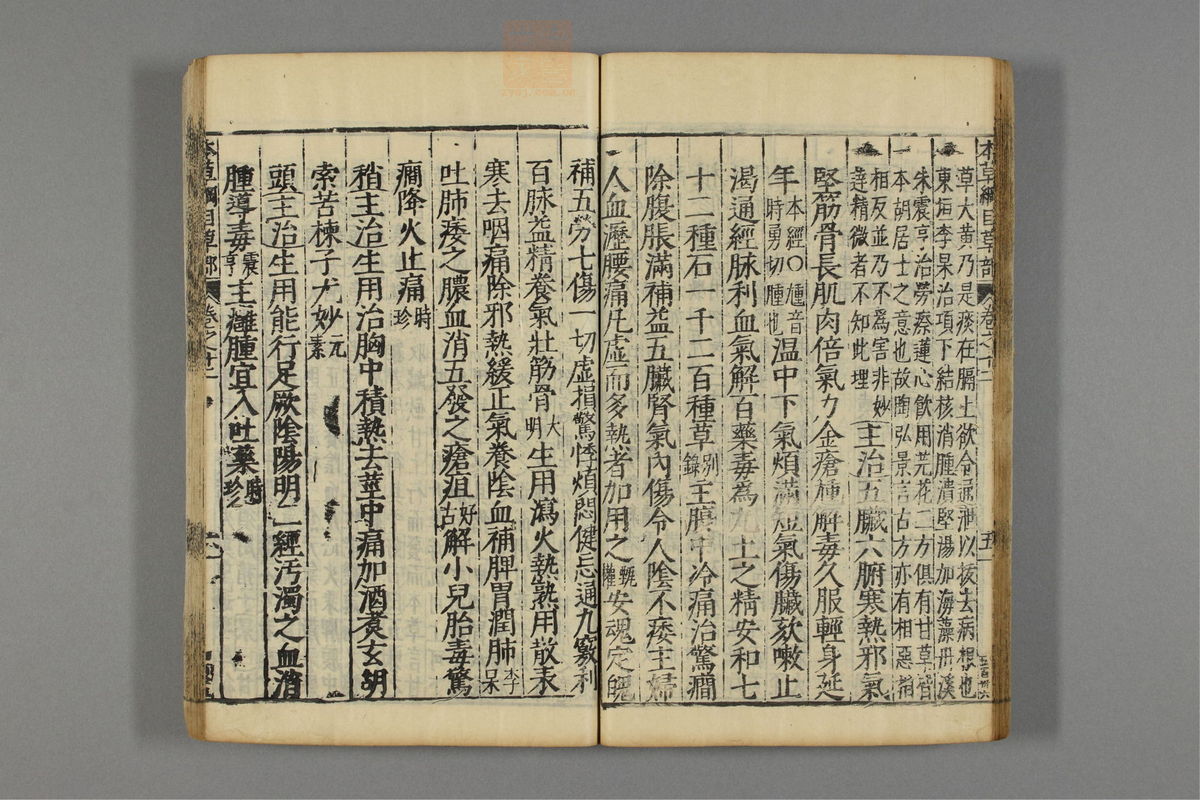 本草綱目草部 卷之十二 五
草大黃乃是痰在膈上欲令通泄以拔去病根也
東垣李杲治項下結核消腫潰堅湯加海藻丹溪
朱震亨治勞瘵蓮心飲用芫花二方俱有甘草皆
本胡居士之意也故陶弘景言古方亦有相惡相
相反並乃不為害非妙
達精微者不知此理
主治五臟六腑寒熱邪氣
堅筋骨長肌肉倍氣力金瘡尰解毒久服輕身延
年本經〇尰音
時勇切腫也
溫中下氣煩滿短氣傷臟欬嗽止
渴通經脉利血氣解百藥毒為九土之精安和七
十二種石一千二百種草別
錄主腹中冷痛治驚癎
除腹脹滿補益五臟腎氣內傷令人陰不痿主婦
人血瀝腰痛凡虛而多熱者加用之甄
權安魂定魄
補五勞七傷一切虛損驚悸煩悶健忘通九竅利
百脉益精養氣壯筋骨大
明生用瀉火熱熟用散表
寒去咽痛除邪熱緩正氣養陰血補脾胃潤肺李
杲
吐肺痿之膿血消五發之瘡疽好
古解小兒胎毒驚
癎降火止痛時
珍
稍主治生用治胸中積熱去莖中痛加酒煮玄胡
索苦楝子尤妙元
素
頭主治生用能行足厥陰陽明二經汚濁之血消
腫導毒震
亨主癰腫宜入吐藥時
珍
本草綱目草部 卷之十二